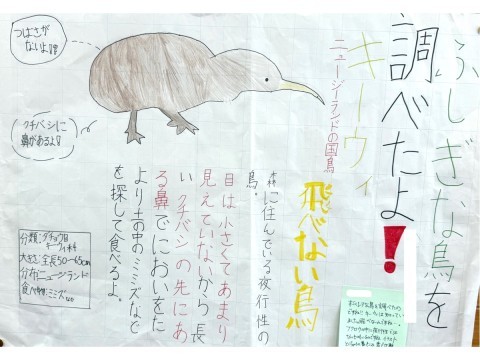 ふしぎな鳥を
調べたよ!
キーウィ
ニュージーランドの国鳥
飛べない鳥
森に住んでいる夜行性の
鳥。
目は小さくてあまり
見えていないから長
い クチバシの先にあ
る鼻でにおいをた
より土の中のミミズなど
を探して食べるよ。
つばさが
ないよ!!
クチバシに
鼻があるよ!
分類:ダチョウ目
キーウィ科
大きさ:全長50〜65cm
分布ニュージーランド
食べ物:ミミズなど